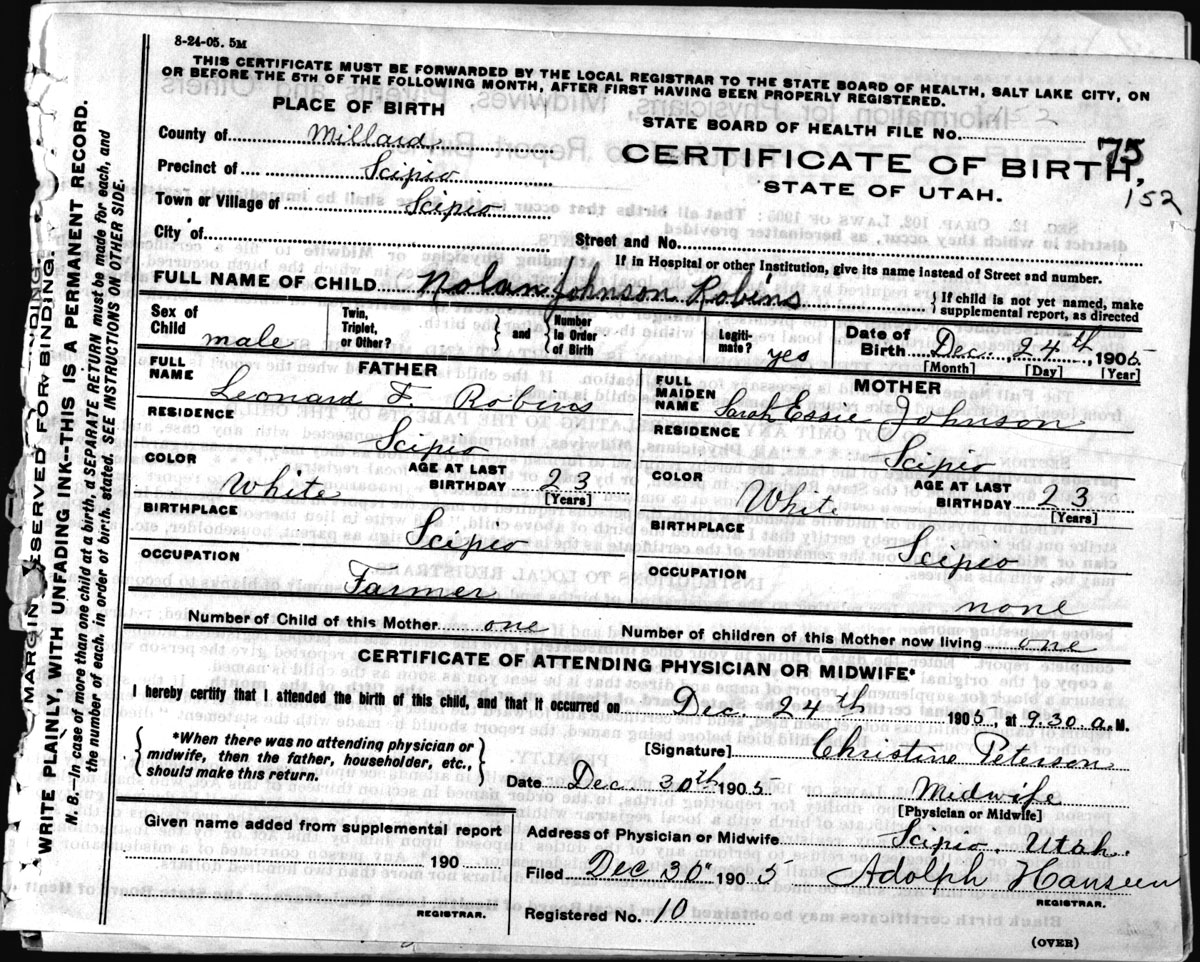 8-24-05. 5M
THIS CERTIFICATE MUST BE FORWARDED BY THE LOCAL REGISTRAR TO THE STATE BOARD OF HEALTH, SALT LAKE CITY, ON
OR BEFORE THE 5TH OF THE FOLLOWING MONTH, AFTER FIRST HAVING BEEN PROPERLY REGISTERED.
PLACE OF BIRTH
STATE BOARD OF HEALTH FILE No.
75
County of Millard
CERTIFICATE OF BIRTH,
Precinct of Scipio
STATE OF UTAH.
152
Town or Village of Scipio
City of
Street and No.
If in Hospital or other Institution, give its name instead of Street and number.
FULL NAME OF CHILD Nolan Johnson Robins
{ If child is not yet named, make
supplemental report, as directed
Sex of Child male
Twin, Triplet, or Other?
{ and { Number in Order of Birth
Legitimate? yes
Date of Birth Dec. 24th, 1905
[Month] [Day] [Year]
FATHER
FULL NAME Leonard F Robins
RESIDENCE Scipio
COLOR White
AGE AT LAST BIRTHDAY 23
[Years]
BIRTHPLACE Scipio
OCCUPATION Farmer
MOTHER
FULL MAIDEN NAME Sarah Essie Johnson
RESIDENCE Scipio
COLOR White
AGE AT LAST BIRTHDAY 23
[Years]
BIRTHPLACE Scipio
OCCUPATION none
Number of Child of this Mother one
Number of children of this Mother now living one
CERTIFICATE OF ATTENDING PHYSICIAN OR MIDWIFE*
I hereby certify that I attended the birth of this child, and that it occurred on Dec 24th 1905, at 9.30 a. M.
{ *When there was no attending physician or
midwife, then the father, householder, etc.,
should make this return. }
[Signature] Christine Peterson
Date Dec. 30th 1905
Midwife
[Physician or Midwife]
Given name added from supplemental report
190
REGISTRAR.
Address of Physician or Midwife Scipio Utah.
Filed Dec 30" 1905 Adolph Hanseen
REGISTRAR.
Registered No. 10
(OVER)
MARGIN RESERVED FOR BINDING.
WRITE PLAINLY, WITH UNFADING INK--THIS IS A PERMANENT RECORD.
N. B.--In case of more than one child at a birth, a SEPARATE RETURN must be made for each, and
the number of each, in order of birth, stated. SEE INSTRUCTIONS ON OTHER SIDE.